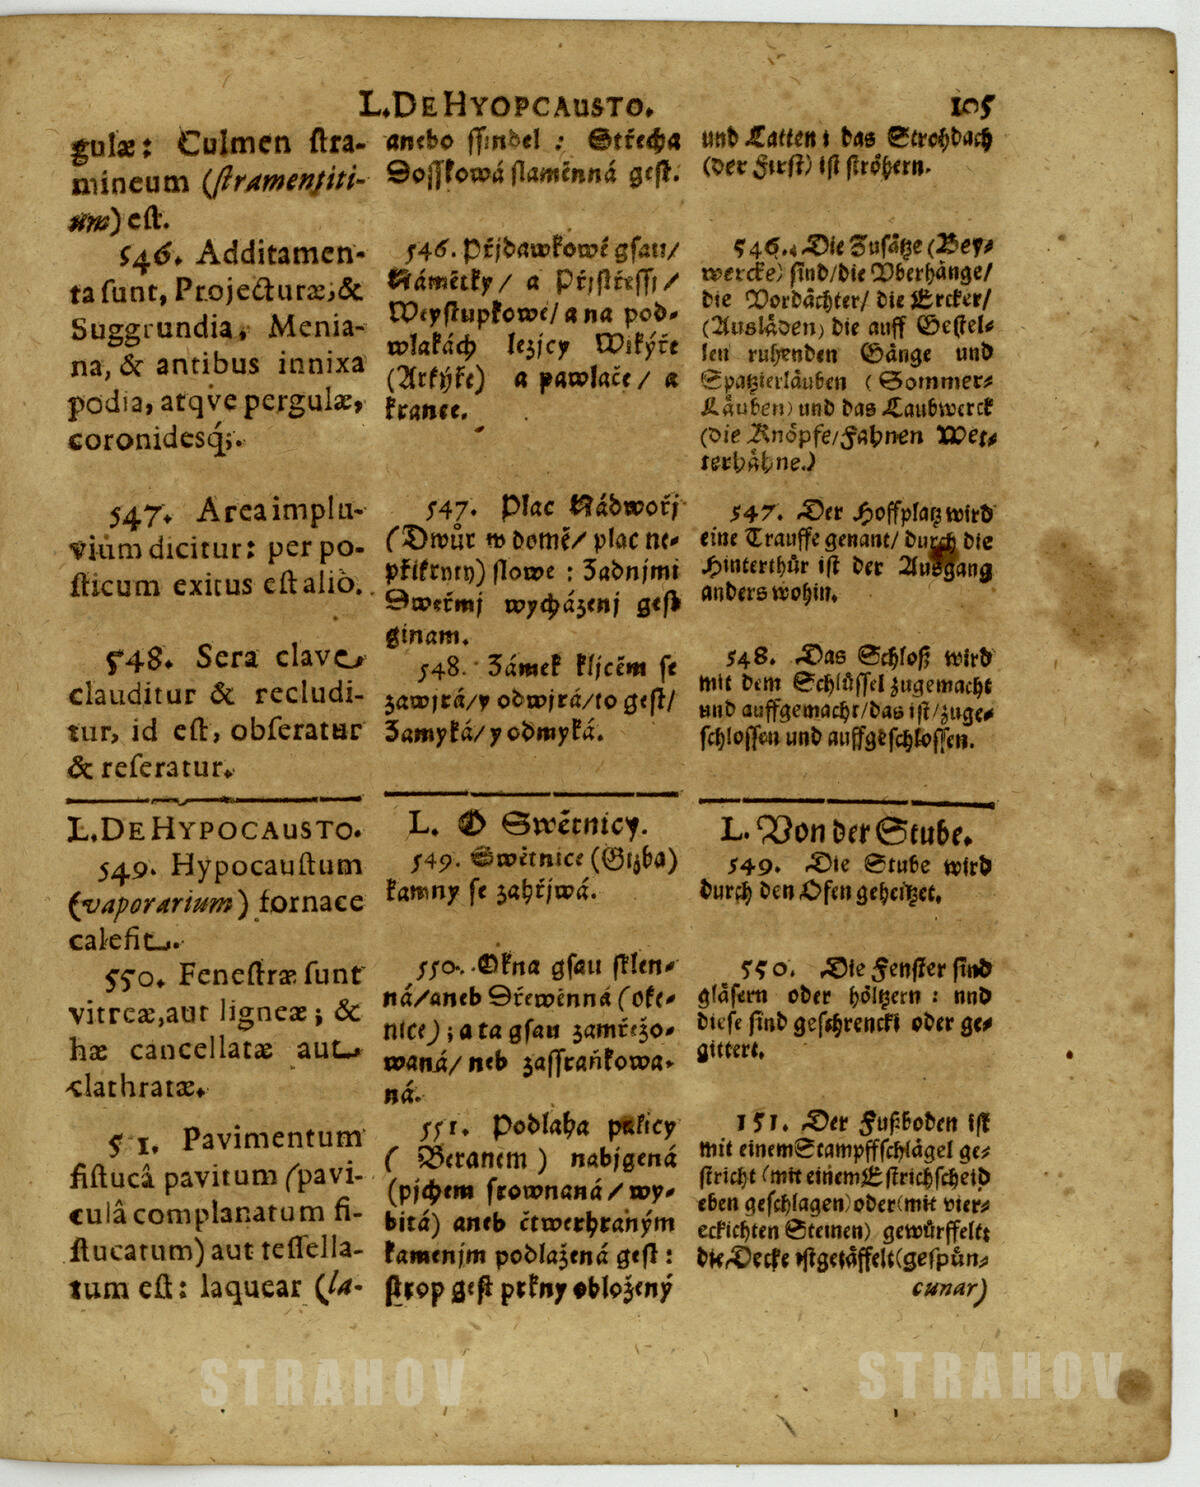 L. DE HYOPCAUSTO.
105
gulæ: Culmen ſtra-
mineum (ſtramentiti-
um) eſt.
546. Additamen-
ta ſunt, Projecturæ, &
Suggrundia, Menia-
na, & antibus innixa
podia, atqve pergulæ,
coronidesq́;.
547. Area implu-
vium dicitur: per po-
ſticum exitus eſt aliò.
548. Sera clave
clauditur & recludi-
tur, id eſt, obſeratur
& reſeratur.
L. DE HYPOCAUSTO.
549. Hypocauſtum
(vaporarium) fornace
calefit.
550. Feneſtræ ſunt
vitreæ, aut ligneæ; &
hæ cancellatæ aut
clathratæ.
5 1. Pavimentum
fiſtucâ pavitum (pavi-
culâ complanatum fi-
ſtucatum) aut teſſella-
tum eſt: laquear (la-
anebo ſſindel: Střecha
Doſſkowá ſlaměnná geſt.
546. Přjdawkowé gſau/
Námětky/ a Přjſtřeſſj/
Weyſtupkowé/ a na pod-
wlakách ležjcy Wikýře
(Arkýře) a pawlače/ a
krance.
547. Plac Nádwořj
(Dwůr w domě/ plac ne-
přikrytý) ſlowe: Zadnjmi
Dweřmj wycházenj geſt
ginam.
548. Zámek kljčěm ſe
zawjrá/ y odwjrá/ to geſt/
Zamyká/ y odmyká.
L. O Swětnicy.
549. Swětnice (Gizba)
kamny ſe zahřjwá.
550. Okna gſau ſklen-
ná/ aneb Dřewěnná (oke-
nice); a ta gſau zamřežo-
waná/ neb zaſſraňkowa-
ná.
551. Podlaha palicy
(Beranem) nabjgená
(pjchem ſrownaná/ wy-
bitá) aneb čtwerhraným
kamenjm podlažená geſt:
ſtrop geſt prkny obložený
und Latten; das Strohdach
(der Firſt) iſt ſtröhern.
546. Die Zuſätze (Bey-
wercke) ſind/ die Vberhänge/
die Vordächter/ die Ercker/
(Ausläden) die auff Geſtel-
len ruhenden Gänge und
Spatzierläuben (Sommer-
Läuben) und das Laubwerck
(die Knöpfe/ Fahnen Wet-
terhähne.)
547. Der Hoffplatz wird
eine Trauffe genant/ durch die
Hinterthür iſt der Ausgang
anders wohin.
548. Das Schloß wird
mit dem Schlüſſel zugemacht
und auffgemacht/ das iſt/ zuge-
ſchloſſen und auffgeſchloſſen.
L. Von der Stube.
549. Die Stube wird
durch den Ofen geheitzet.
550. Die Fenſter ſind
gläſern oder höltzern: und
dieſe ſind geſchrenckt oder ge-
gittert.
151. Der Fußboden iſt
mit einem Stampffſchlägel ge-
ſtricht (mit einem Eſtrichſcheid
eben geſchlagen) oder (mit vier-
eckichten Steinen) gewürffelt;
die Decke iſt getäffelt (geſpün-
cunar)
STRAHOV
STRAHOV